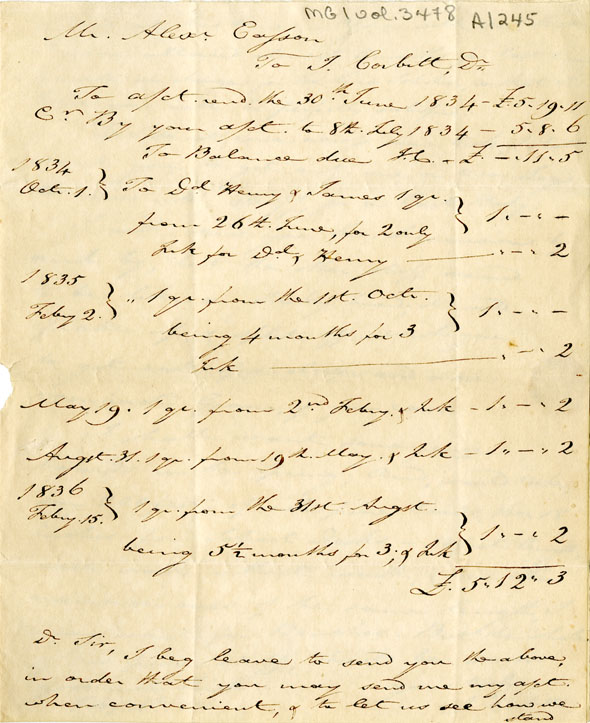 MG1 vol. 3478 A1245
Mr. Alexr. Easson
To J. Corbitt, Dr.
To apct. rend. the 30th June 1834 - £5.19.11
Cr. By your apct. to 8th July 1834 - 5.8.6
To Balance due - £ - „ 11 „ 5
1834
Octr. 1. } To Dd. Henry & James 1 qr.
from 26th. June, for 2 only } 1 „ - „ -
Ink for Dd. & Henry — „ - „ 2
1835
Febry 2. } „ 1 qr. from the 1st. Octr.
being 4 months for 3 } 1 „ - „ -
Ink — „ - „ 2
May 19. 1 qr. from 2nd Febry. & Ink - 1 „ - „ 2
Augst. 31. 1 qr. from 19th. May. & Ink - 1 „ - „ 2
1836
Febry. 15. } 1 qr. from the 31st. Augst.
being 5½ months for 3, & Ink } 1 „ - „ 2
£. 5 „ 12 „ 3
Dr. Sir, I beg leave to send you the above,
in order that you may send me my apct.
when convenient, & to let us see how we
stand